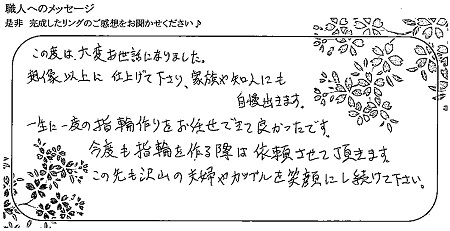 職人へのメッセージ
是非 完成したリングのご感想をお聞かせください♪
この度は、大変お世話になりました。
想像以上に仕上げて下さり、家族や知人にも
自慢出きます。
一生に一度の指輪作りをお任せできて良かったです。
今度も指輪を作る際は依頼させて頂きます。
この先も沢山の夫婦やカップルを笑顔にし続けて下さい。